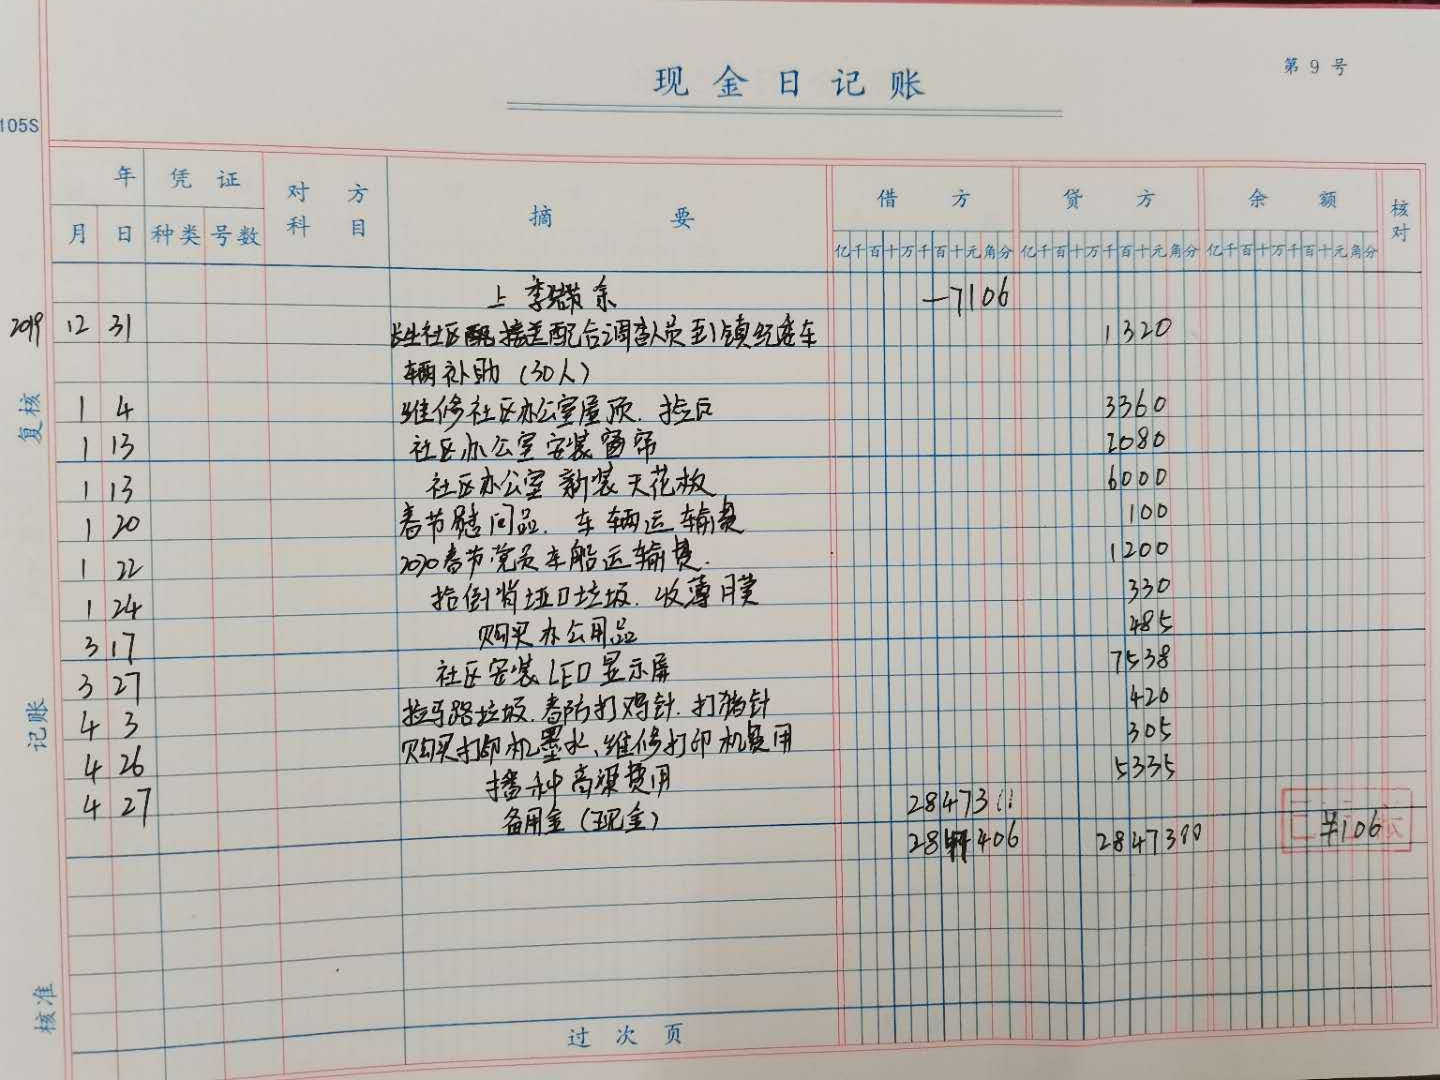 现金日记账
第 9 号
105S
年 凭证 对方科目 摘要 借方 贷方 余额 核对
月 日 种类 号数 亿千百十万千百十元角分 亿千百十万千百十元角分 亿千百十万千百十元角分
上季结余 7106
2019 12 31 长生社区接送配合调查人员到镇纪委车 1320
辆补助（30人）
1 4 维修社区办公室屋顶、捡瓦 3360
1 13 社区办公室安装窗帘 2080
1 13 社区办公室新装天花板 6000
1 20 春节慰问品、车辆运输费 100
1 22 2020春节党员车船运输费. 1200
1 24 垭口垃圾、收薄膜 330
3 17 购买办公用品 485
3 27 社区安装LED显示屏 7538
4 3 拉马路垃圾、春防打鸡针、打猪针 420
4 26 购买打印机墨水、维修打印机费用 305
4 27 播种高粱费用 5335
备用金（现金） 28473
406 28473 ¥106
过次页
复核
记账
核准